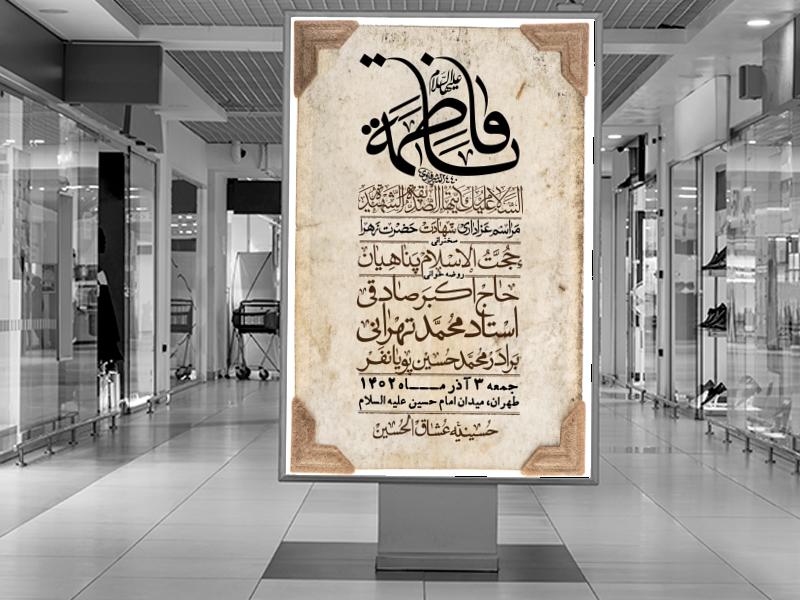 فاطمة
علیها السلام
السلام علیک ایتها الصدیقة الشهیدة
مراسم عزاداری شهادت حضرت زهرا
سخنرانی
حجت الاسلام پناهیان
روضه خوانی
حاج اکبر صادقی
استاد محمد تهرانی
برادر محمد حسین پویانفر
جمعه ۳ آذر مـــاه ۱۴۰۲
طهران، میدان امام حسین علیه السلام
حسینیه عشاق الحسین